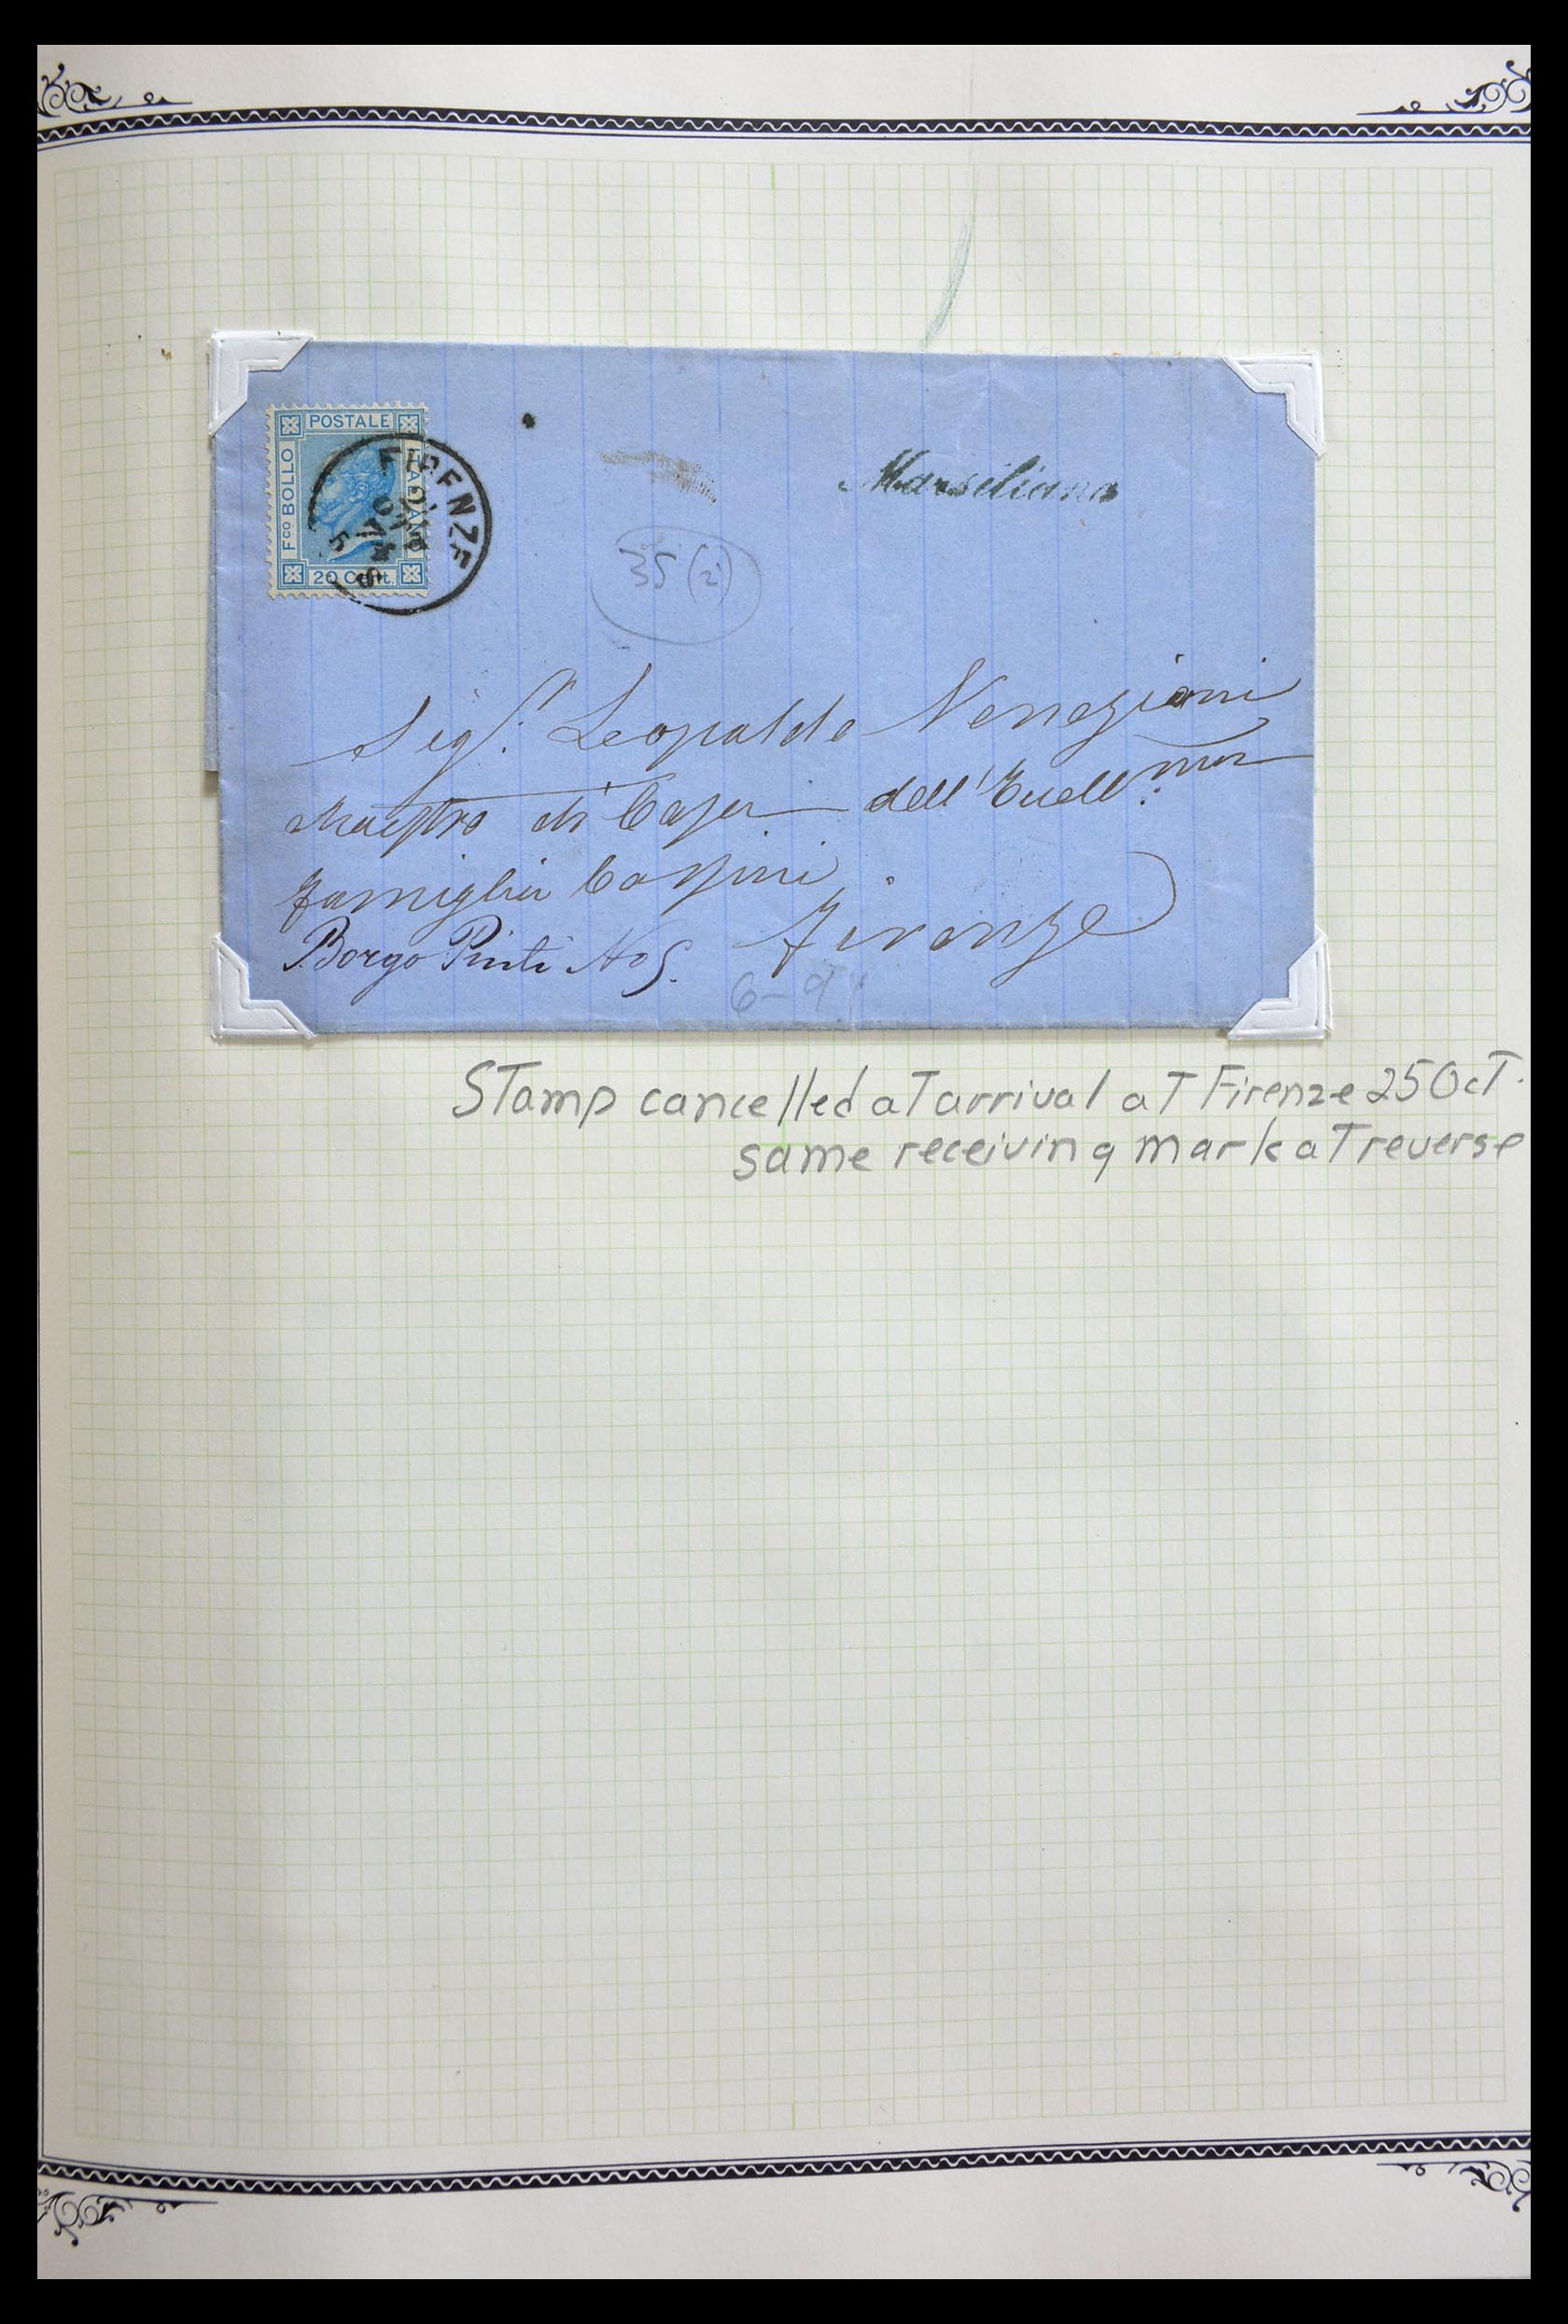 POSTALE
Fco BOLLO
ITALIANO
20 Cent.
FIRENZE
Marsiliana
35 (2)
Sigr. Leopoldo Veneziani
Maestro di Casa dell'Eccell.ma
famiglia Corsini
Firenze
Borgo Pinti No
6-9
STamp cancelled aT arrival aT Firenze 25 OcT.
same receiving mark aT reverse